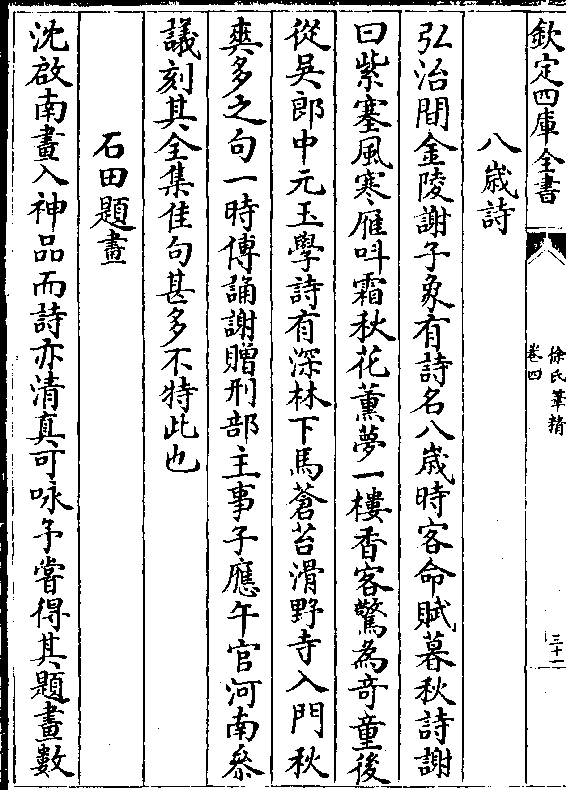 欽定四庫全書
徐氏筆精
卷四
三十一
八歲詩
弘治間金陵謝子象有詩名八歲時客命賦暮秋詩謝
曰紫塞風寒雁呌霜秋花薰夢一樓香客驚為奇童後
從吳郎中元玉學詩有深林下馬蒼苔滑野寺入門秋
爽多之句一時傳誦謝贈刑部主事子應午官河南叅
議刻其全集佳句甚多不特此也
石田題畫
沈啟南畫入神品而詩亦清真可咏予嘗得其題畫數